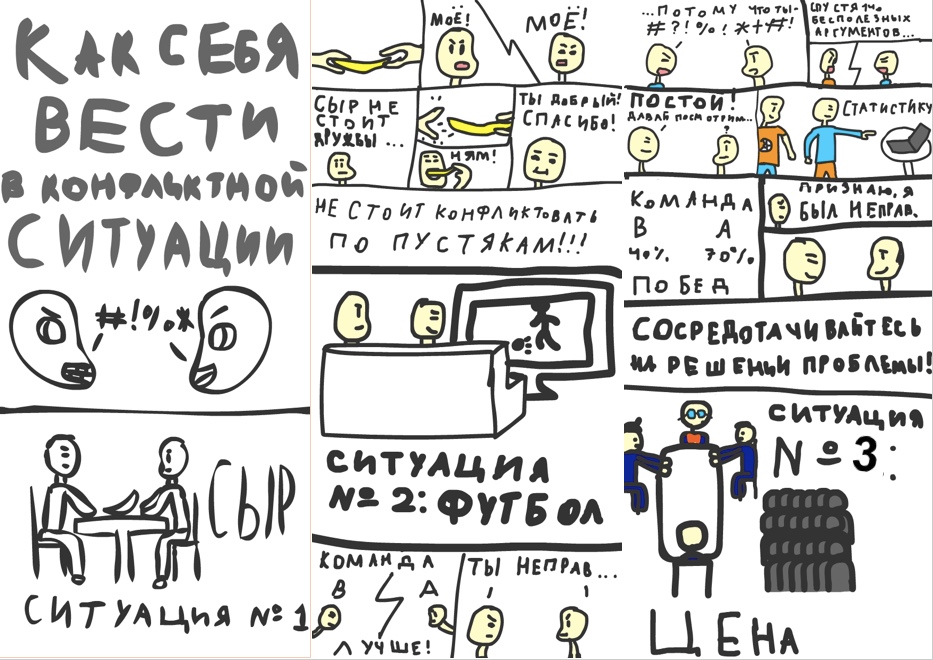 КАК СЕБЯ
ВЕСТИ
В КОНФЛИКТНОЙ
СИТУАЦИИ
#!%*
СЫР
СИТУАЦИЯ №1
МОЁ!
МОЁ!
СЫР НЕ
СТОИТ
ДРУЖБЫ...
НЯМ!
ТЫ ДОБРЫЙ!
СПАСИБО!
НЕ СТОИТ КОНФЛИКТОВАТЬ
ПО ПУСТЯКАМ!!!
СИТУАЦИЯ
№2: ФУТБОЛ
КОМАНДА
В А
ЛУЧШЕ!
ТЫ НЕПРАВ...
...ПОТОМУ ЧТО ТЫ-
#?!%!*+#!
СПУСТЯ 1 ЧАС
БЕСПОЛЕЗНЫХ
АРГУМЕНТОВ...
ПОСТОЙ!
ДАВАЙ ПОСМОТРИМ...
?
СТАТИСТИКУ
КОМАНДА
В А
40% 70%
ПОБЕД
ПРИЗНАЮ, Я
БЫЛ НЕПРАВ.
СОСРЕДОТАЧИВАЙТЕСЬ
НА РЕШЕНИИ ПРОБЛЕМЫ!
СИТУАЦИЯ
№3:
ЦЕНА